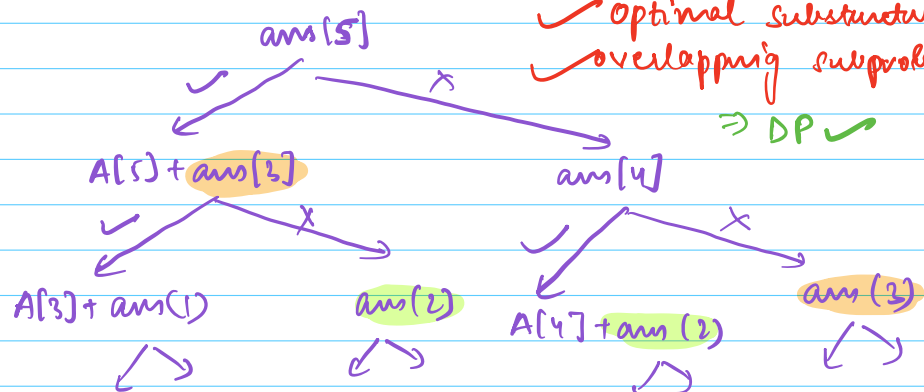 ✓ optimal substructu
ans[5]
✓ overlapping subprob
✓ x
⇒ DP ✓
A[5] + ans[3]
ans[4]
✓ x
✓ x
A[3] + ans(1)
ans(2)
A[4] + ans(2)
ans(3)